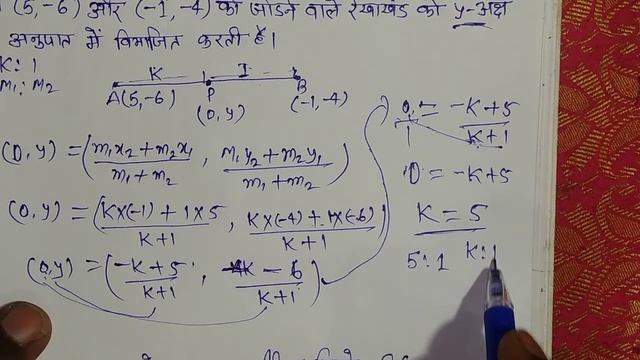 (5, -6) और (-1, -4) को जोडने वाले रेखाखंड को y-अक्ष
अनुपात में विभाजित करती है।
K : 1
m₁ : m₂
K 1
A(5, -6) P B
(0, y) (-1, -4)
(0, y) = (m₁x₂ + m₂x₁ / m₁ + m₂ , m₁y₂ + m₂y₁ / m₁ + m₂)
(0, y) = (K×(-1) + 1×5 / K+1 , K×(-4) + 1×(-6) / K+1)
(0, y) = (-K+5 / K+1 , -4K - 6 / K+1)
0/1 = -K+5 / K+1
0 = -K+5
K = 5
5 : 1 K : 1